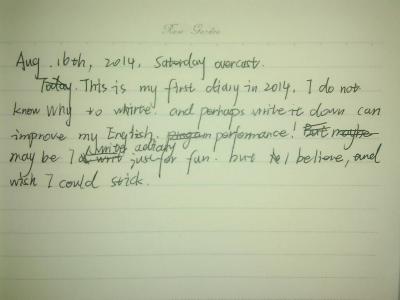 Kara Garden
Aug. 16th, 2014. Saturday overcast.
Today. This is my first diary in 2014. I do not
know why to white. and perhaps write it down can
improve my English. performance! But maybe
may be I write a diary just for fun. but I believe, and
wish I could stick.